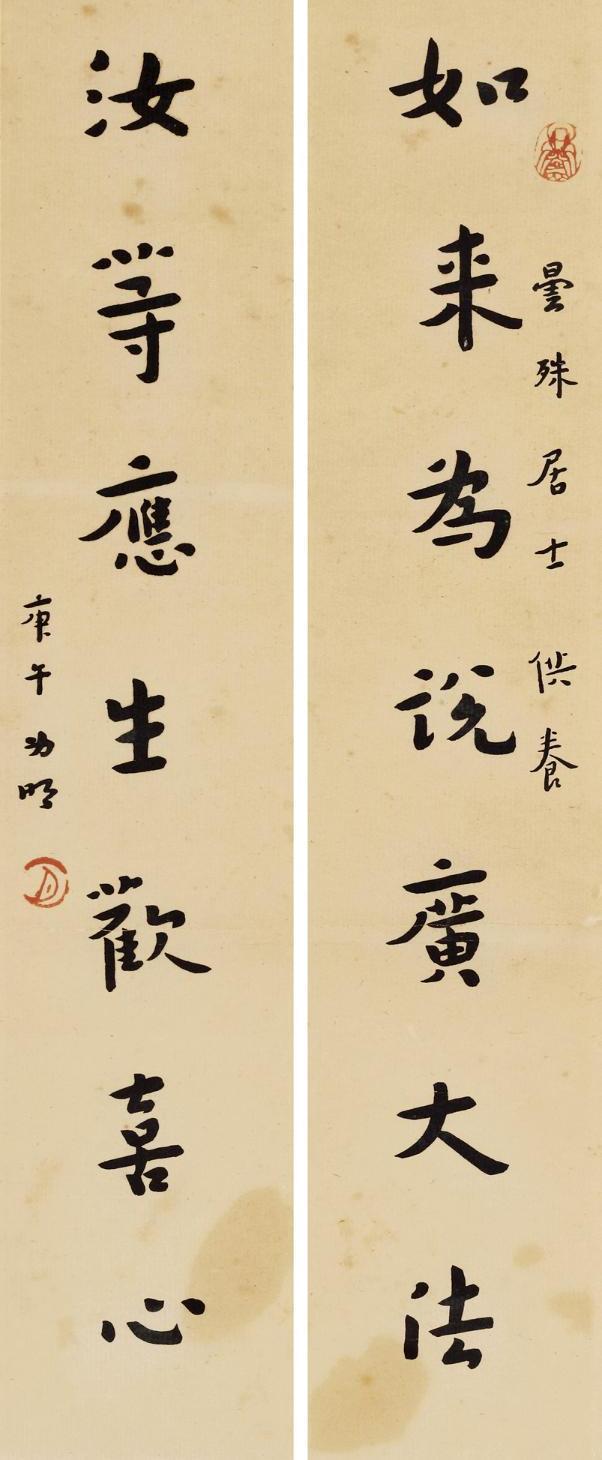 曇殊居士供養
如来為說廣大法
汝等應生歡喜心
庚午